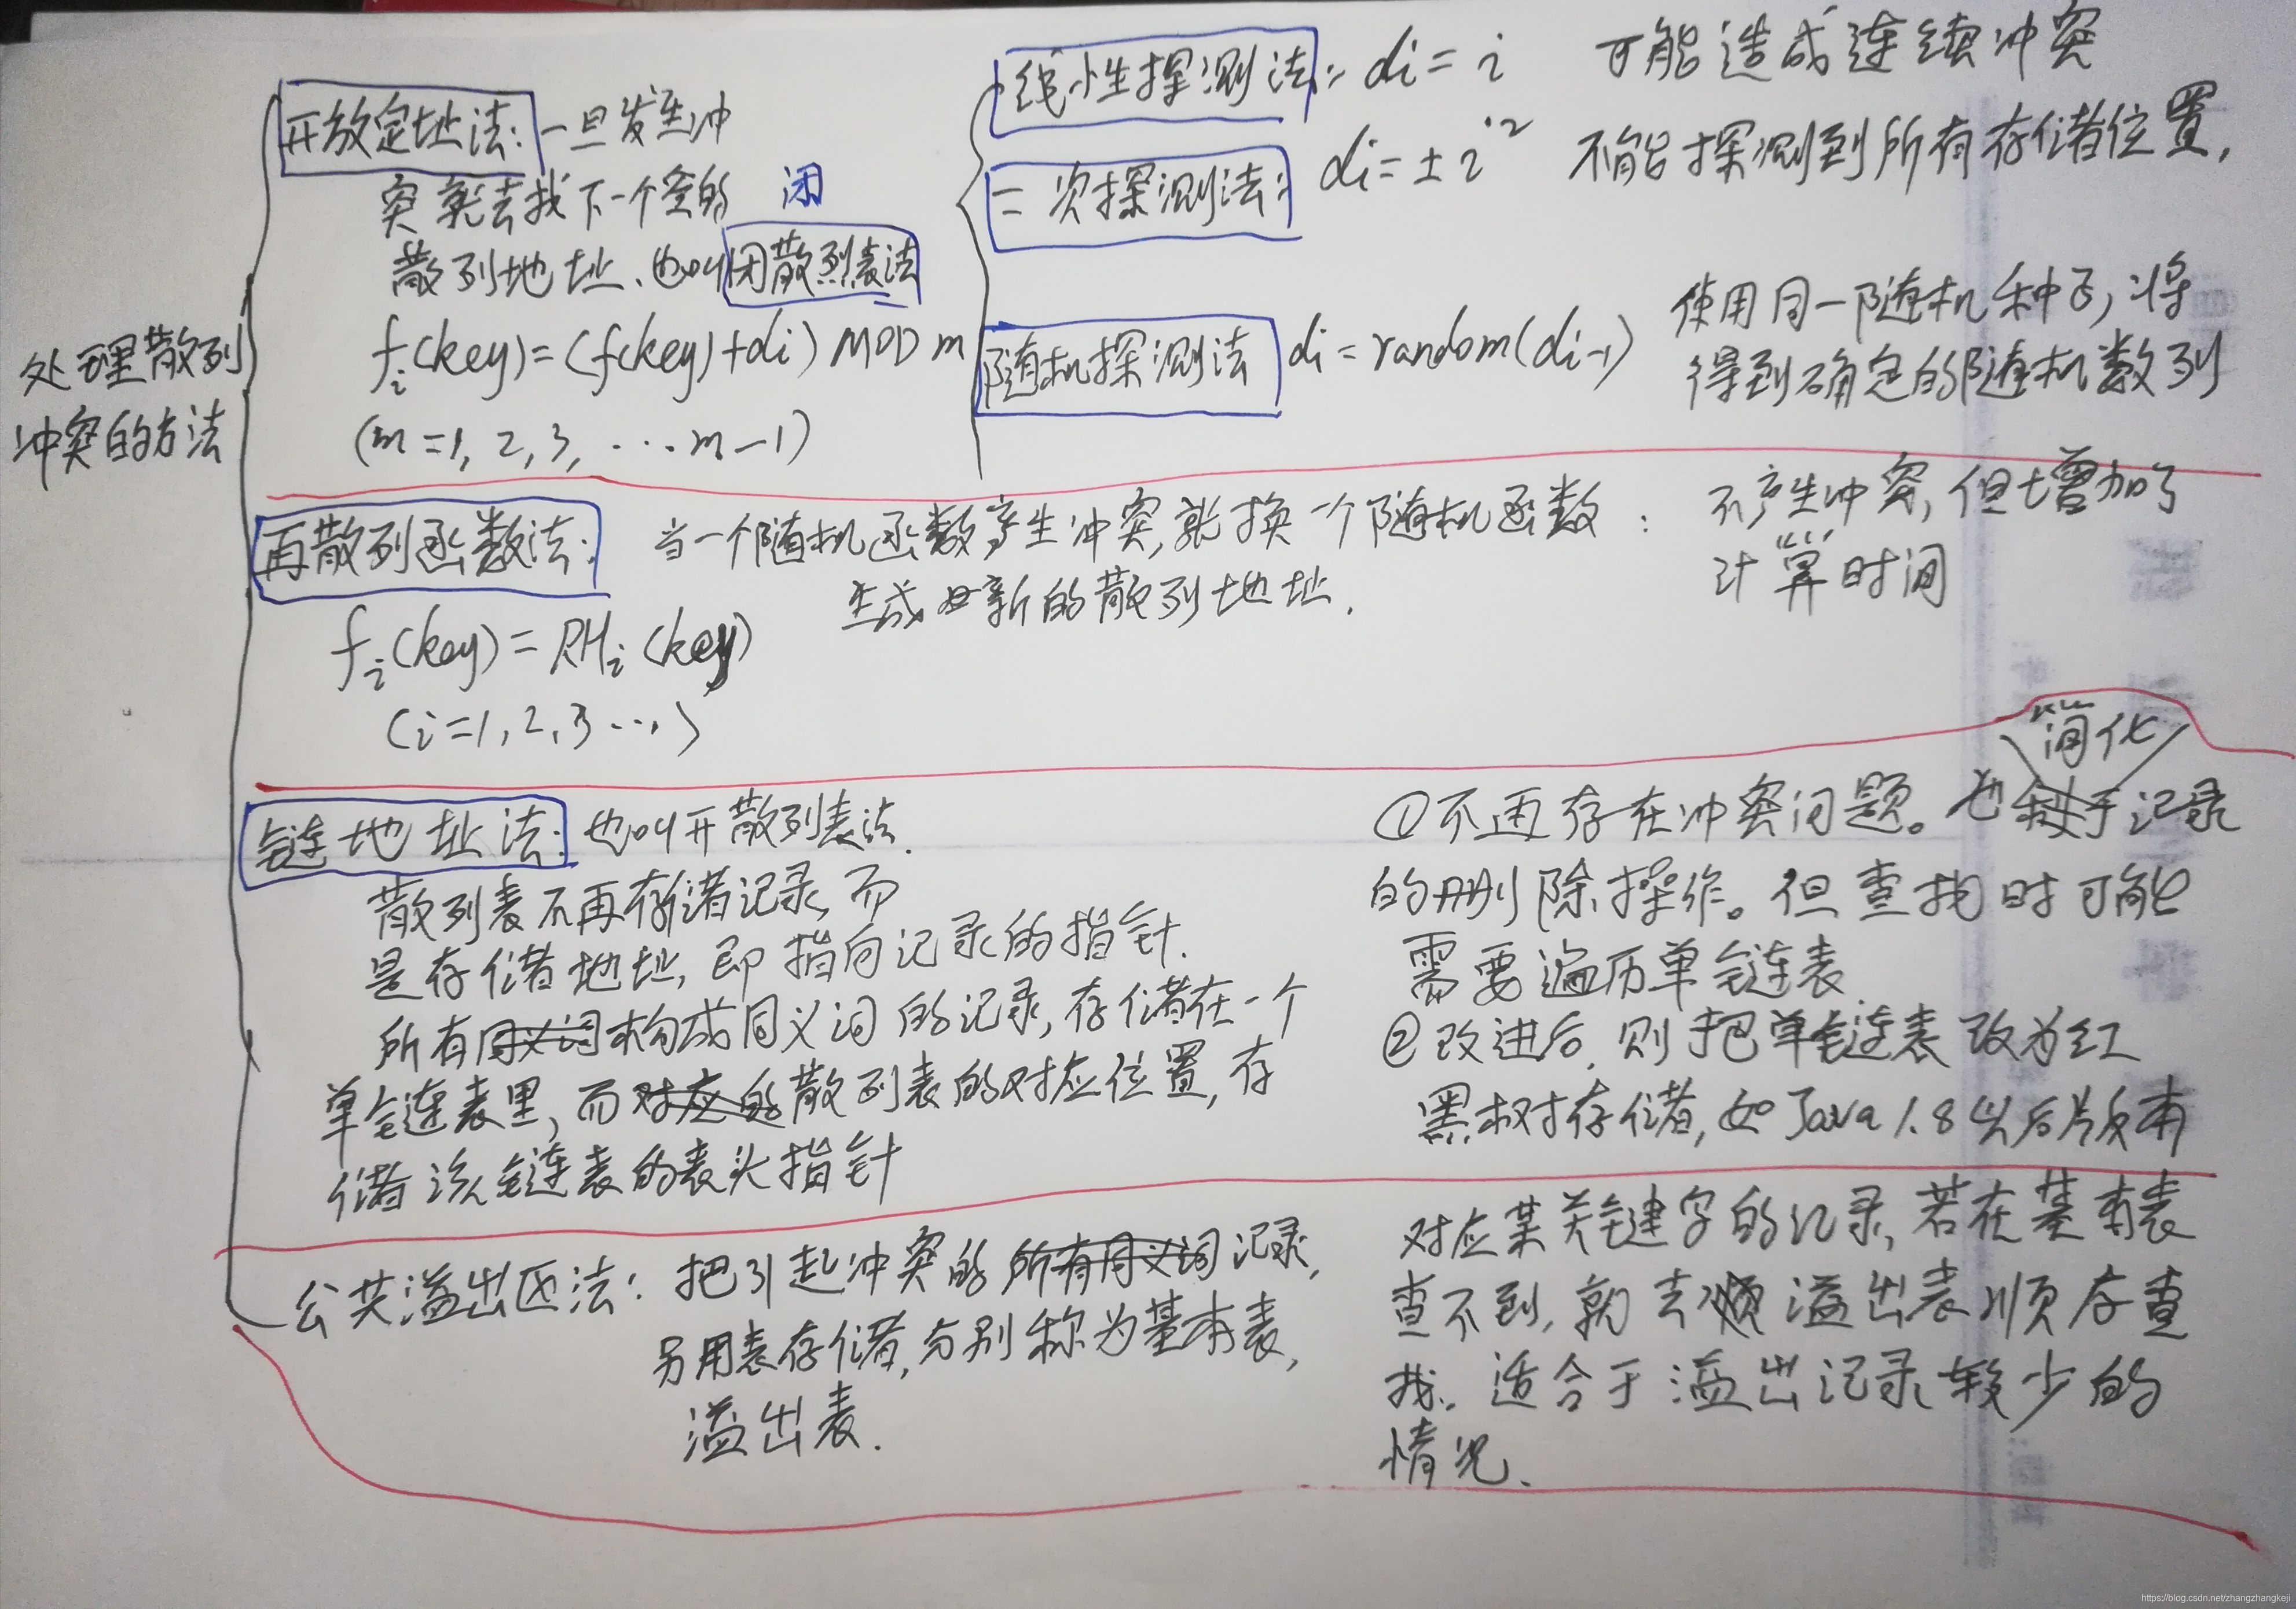 处理散列
冲突的方法
开放定址法:一旦发生冲
突就去找下一个空的
闭
散列地址、也叫闭散列表法
fi(key)=(f(key)+di) MOD m
(m=1, 2, 3, ...m-1)
线性探测法: di=i 可能造成连续冲突
二次探测法: di=±i² 不能探测到所有存储位置,
随机探测法 di=random(di-1) 使用同一随机种子,将
得到确定的随机数列
再散列函数法: 当一个随机函数产生冲突,就换一个随机函数:
生成 新的散列地址.
不产生冲突,但增加了
计算时间
fi(key)=RHi(key)
(i=1, 2, 3 ...)
链地址法: 也叫开散列表法.
散列表不再存储记录,而
是存储地址,即指向记录的指针.
所有同义词构成同义词的记录,存储在一个
单链表里,而对应的散列表的对应位置,存
储该链表的表头指针
简化
①不再存在冲突问题。也 于记录
的删除操作。但查找时可能
需要遍历单链表
②改进后,则把单链表改为红
黑树存储,如Java 1.8以后版本
公共溢出区法: 把引起冲突的所有同义词记录,
另用表存储,分别称为基本表,
溢出表.
对应某关键字的记录,若在基本表
查不到,就去顺溢出表顺存查
找. 适合于溢出记录较少的
情况.
https://blog.csdn.net/zhangzhangkeji